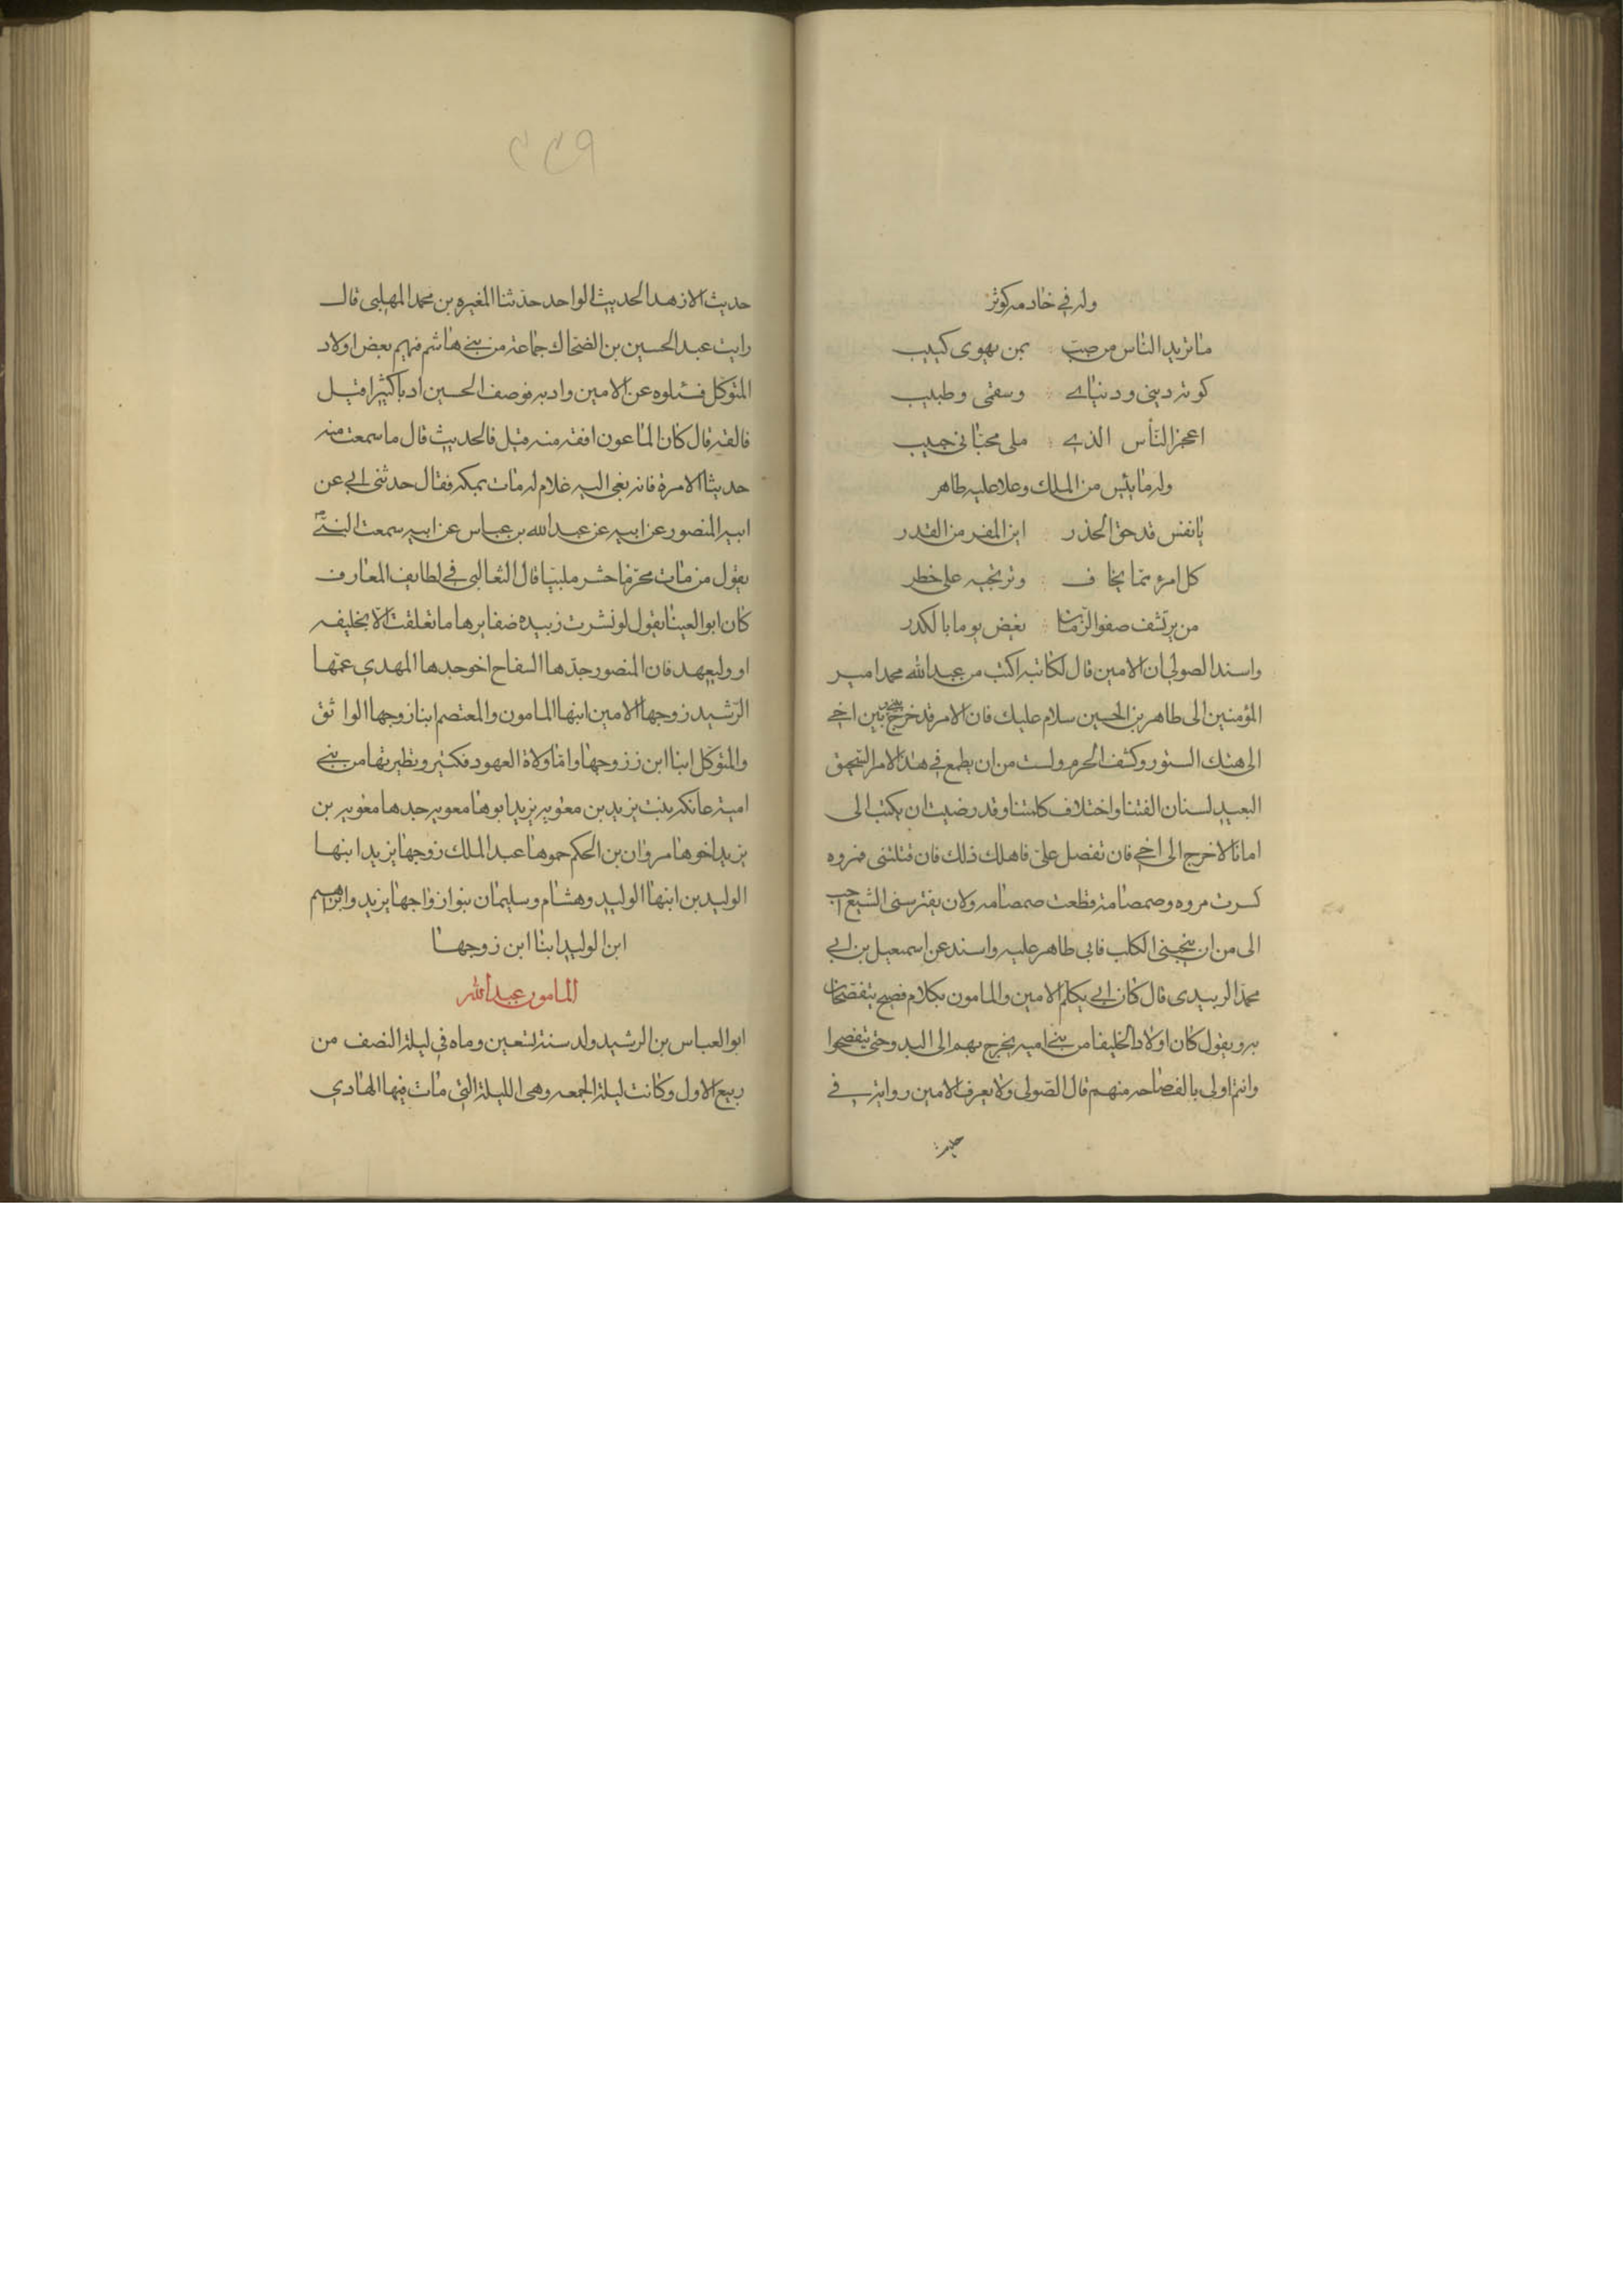 وله في خادمه كوثر
ما تريد الناس من صب بمن يهوى كييب
كوثر ديني ودنياي وسقمي وطبيب
اعجز الناس الذي ملى محبا في حبيب
وله ما يئس من الملك وعلا عليه طاهر
يا نفس قد حق الحذر اين المفر من القدر
كل امرء مما يخاف وترتجيه على خطر
من يرتشف صفو الزمان يغص يوما بالكدر
واسند الصولي ان الامين قال لكاتبه اكتب من عبد الله محمد امير
المؤمنين الى طاهر بن الحسين سلام عليك فان الامر قد خرج بيني وبين اخي
الى هتك الستور وكشف الحرم ولست من ان يطمع في هذا الامر السحيق
البعيد لسنان الفتنا واختلاف كلمتنا وقد رضيت ان يكتب الى
امانا لاخرج الى اخي فان تفضل على فاهلك ذلك فان قتلتني فمروه
كسرت مروه وصمصامة قطعت صمصامه ولان يفترسني السبع احب
الى من ان ينجني الكلب فابى طاهر عليه واسند عن اسمعيل بن ابي
محمد الزبيدي قال كان ابي يكلم الامين والمامون بكلام فصيح يتفصحان
به ويقول كان اولاد الخليفا من بني اميه يخرج بهم الى البدو حتى يتفصحوا
وانتم اولى بالفصاحه منهم قال الصولي ولا يعرف الامين رواية في
حديث
٢٢٩
حديث الا زهد الحديث الواحد حدثنا المغيره بن محمد المهلبي قال
رايت عبد الحسين بن الضحاك جماعة من بني هاشم فيهم بعض اولاد
المتوكل فسئلوه عن الامين وادبه فوصف الحسين ادبا كثيرا قيل
فالفقه قال كان الماعون افقه منه قيل فالحديث قال ما سمعت منه
حديثا الا مرة فانه نعى اليه غلام له مات بمكه فقال حدثني ابي عن
ابيه المنصور عن ابيه عن عبد الله بن عباس عن ابيه سمعت النبي
يقول من مات محرما حشر ملبيا قال الثعالبي في لطايف المعارف
كان ابو العينا يقول لو نشرت زبيده ضفايرها ما تعلقت الا بخليفه
او وليعهد فان المنصور جدها السفاح اخو جدها المهدي عمها
الرشيد زوجها الامين ابنها المامون والمعتصم ابنا زوجها الواثق
والمتوكل ابنا ابن زوجها واما ولاة العهود فكثير ونظيرتها من بني
امية عاتكه بنت يزيد بن معويه يزيد ابوها معويه جدها معويه بن
يزيد اخوها مروان بن الحكم حموها عبد الملك زوجها يزيد ابنها
الوليد بن ابنها الوليد وهشام وسليمان بنو ازواجها يزيد وابراهيم
ابن الوليد ابنا ابن زوجها
المامون عبد الله
ابو العباس بن الرشيد ولد سنة تسعين وماه في ليلة النصف من
ربيع الاول وكانت ليلة الجمعه وهى الليلة التي مات فيها الهادي